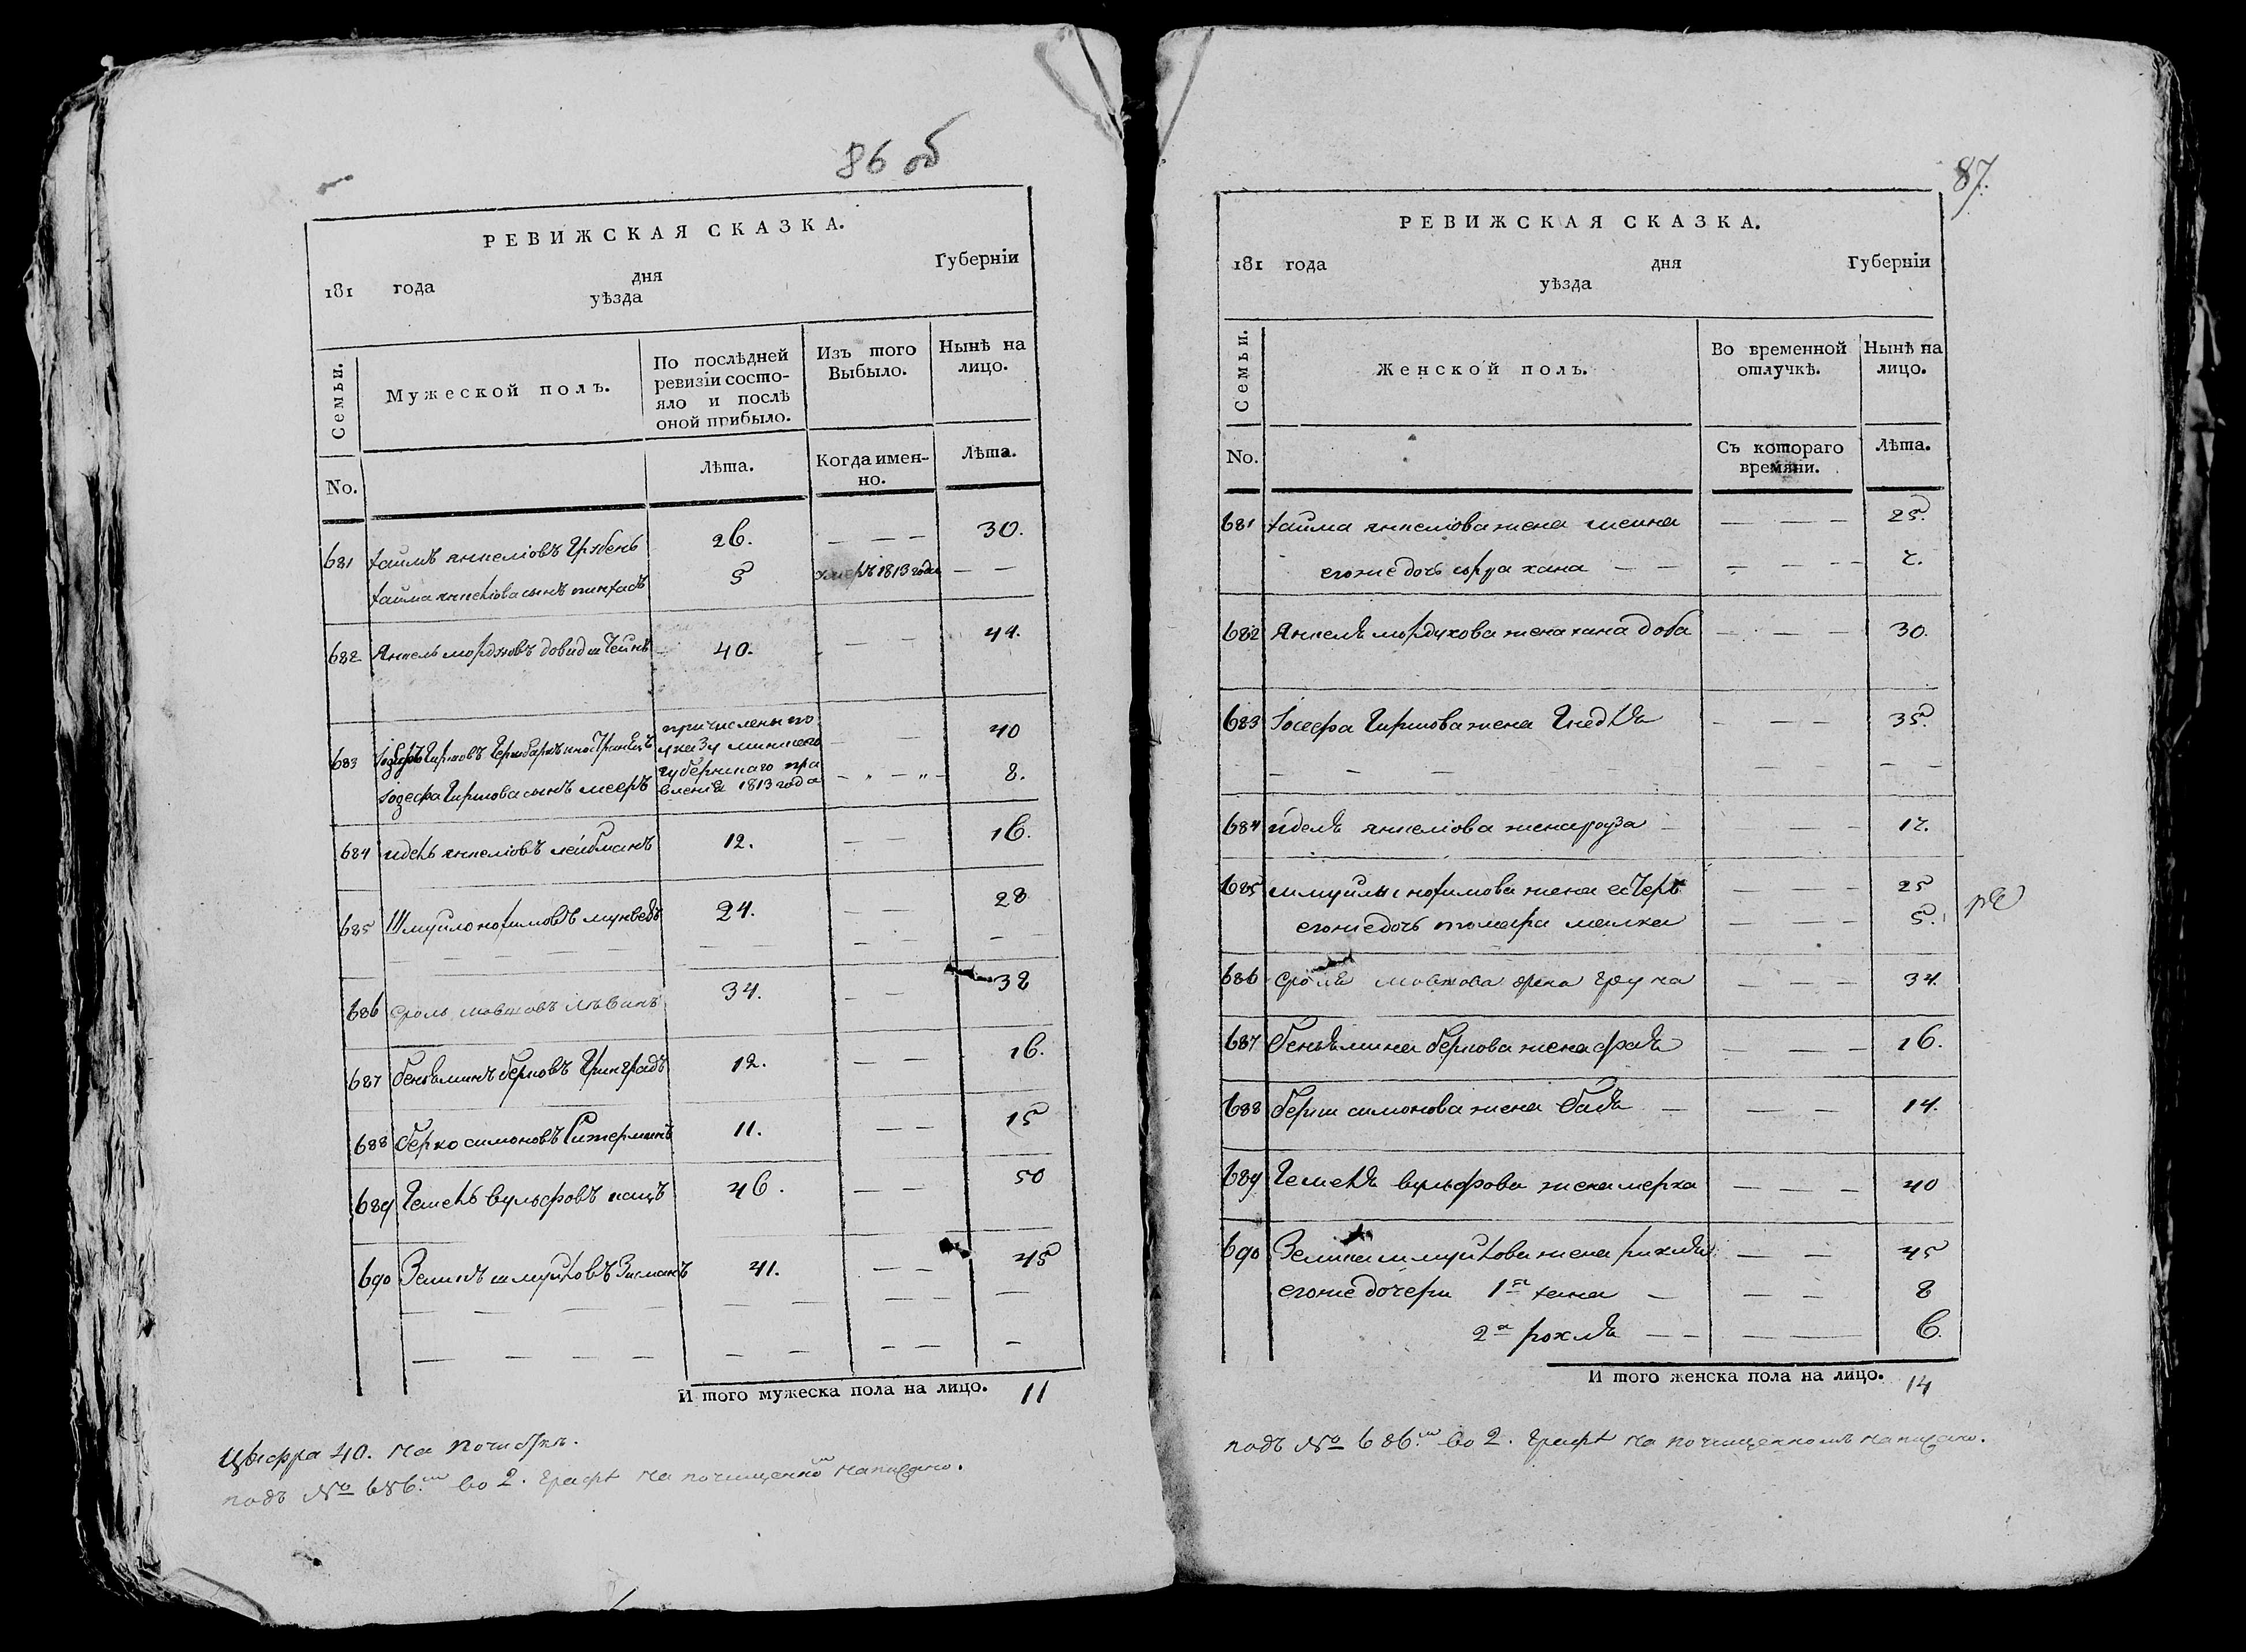 86 об
РЕВИЖСКАЯ СКАЗКА.
181 года дня Губерніи
уѣзда
Семьи. Мужеской полъ. По послѣдней ревизіи состояло и послѣ оной прибыло. Изъ того Выбыло. Нынѣ на лицо.
No. Лѣта. Когда именно. Лѣта.
681 хаимъ янкеліовъ 26. — — — 30.
хаима янкеліова сынъ пинхасъ 5 умеръ 1813 года — —
682 Янкель мордховъ довидштейнъ 40. — — 44.
683 Гиршовъ причислены по указу минскаго — — 40
Іозефа Гиршова сынъ мееръ губернскаго правленія 1813 года — „ — „ — 8.
684 идель янкеліовъ лейбманъ 12. — — 16.
685 Шмуйло нохимовъ 24. — — 28
— — — — — — — — —
686 сроль мовшовъ лѣвинъ 34. — — 38
687 бенѣминъ берковъ Гринградъ 12. — — 16.
688 берко симоновъ 11. — — 15
689 Гемель вульфовъ кацъ 46. — — 50
690 Зеликъ шмуйловъ Зисманъ 41. — — 45
— — — — — — — — —
— — — — — — — — —
И того мужеска пола на лицо. 11
Цыфра 40. на почистке.
подъ № 686.мъ во 2. графѣ на почищенномъ написано.
87.
РЕВИЖСКАЯ СКАЗКА.
181 года дня Губерніи
уѣзда
Семьи. Женской полъ. Во временной отлучкѣ. Нынѣ на лицо.
No. Съ котораго времяни. Лѣта.
681 хаима янкеліова жена шейна — — — 25.
его же дочь сора хана — — — — — — 2.
682 Янкеля мордухова жена хана доба — — — 30.
683 Іосефа Гиршова жена Гнедля — — — 35.
— — — — — — — — —
684 иделя янкеліова жена роуза — — — 17.
685 шмуилы нохимова жена естеръ — — — 25
его же дочь томара малка — — — 5.
686 сроля мовшова жена груна — — — 34.
687 бенѣмина беркова жена фрадля — — — 16.
688 берки симонова жена бадя — — — 14.
689 Гемеля вульфова жена мерка — — — 40
690 Зелика шмуйлова жена рихля — — 45
его же дочери 1я хана — — — 8
2я рохля — — — — 6.
И того женска пола на лицо. 14
подъ № 686.мъ во 2. графѣ на почищенномъ написано.